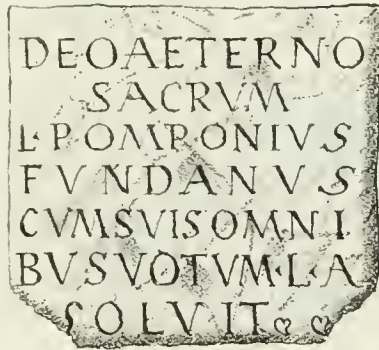 DEOAETERNO
SACRVM
L·POMPONIVS
FVNDANVS
CVMSVISOMNI
BVSVOTVM·L·A
SOLVIT